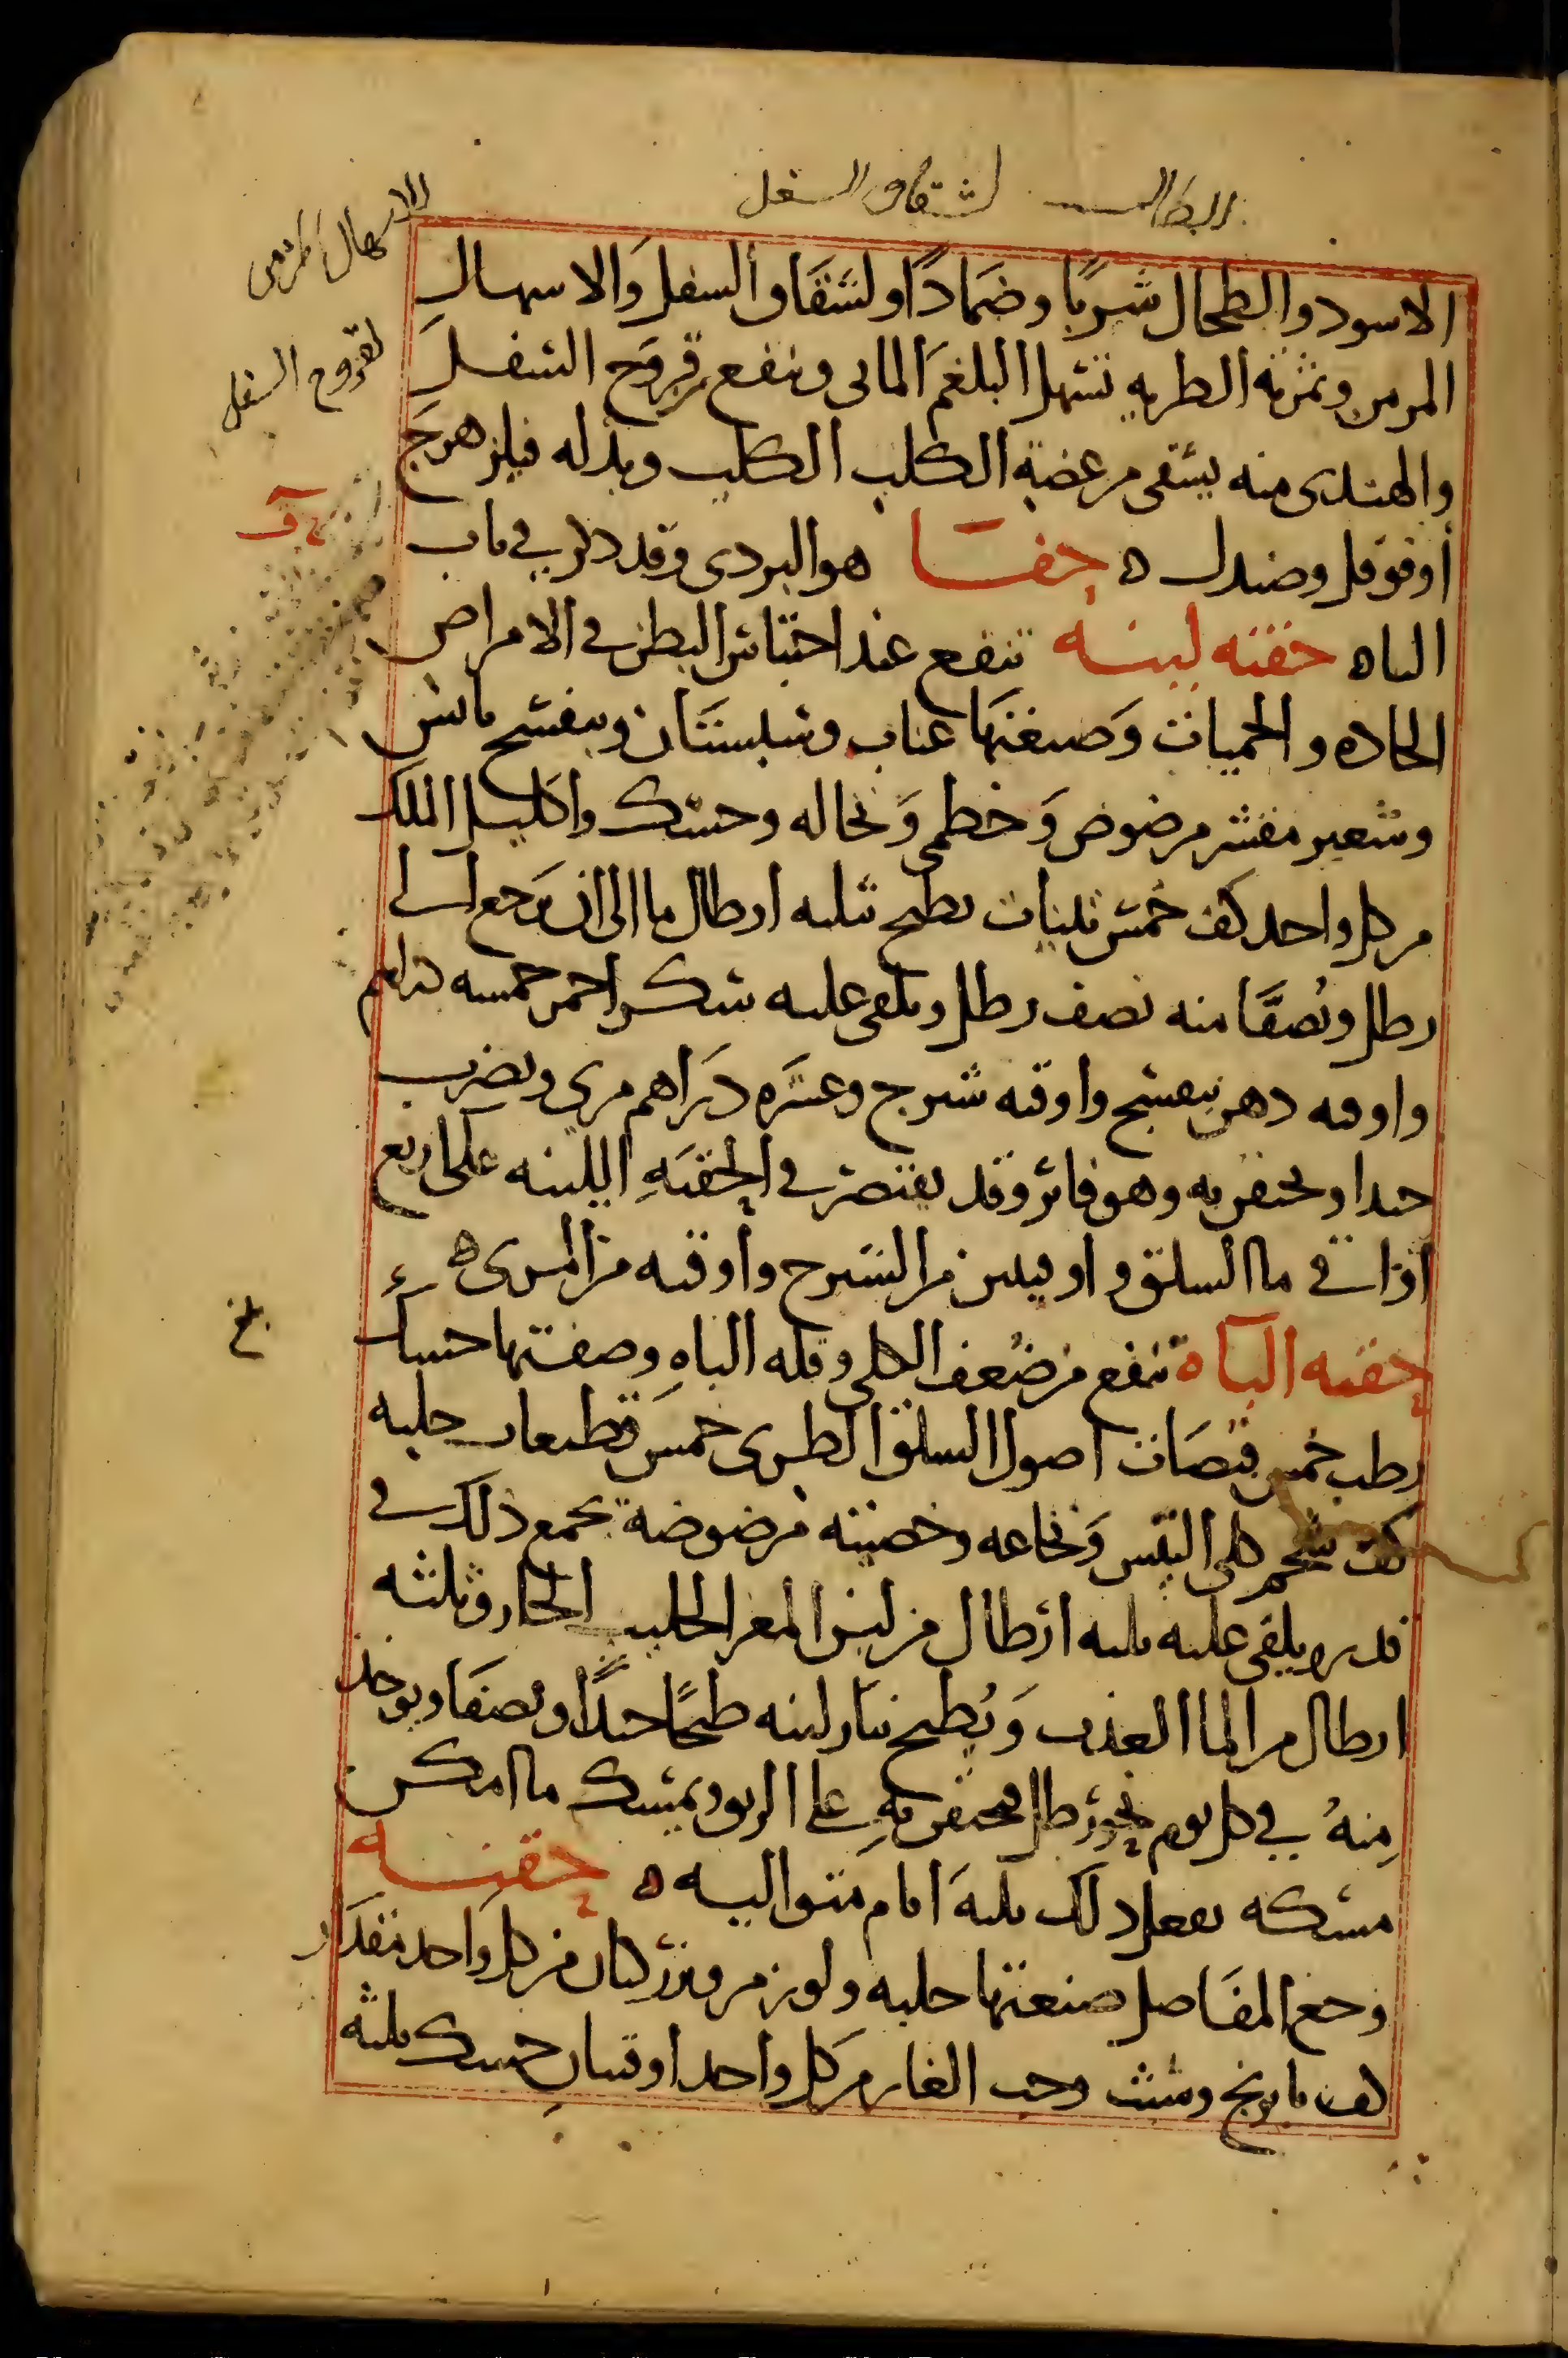 للطحال لشقاق السفل
الاسهال المزمن
لقروح السفل
الاسود والطحال شربًا وضمادًا ولشقاق السفل والاسهال
المزمن وثمرته الطرية تسهل البلغم المائى وينفع قروح السفل
والهندى منه يسقى من عضة الكلب الكلب وبدله فيلزهرج
أوفوفل وصندل ه حفا هو البردى وقد ذكر في باب
الباه حقنه لينه تنفع عند احتباس البطن في الامراض
الحاده والحميات وصنعتها عناب وسبستان وبنفسج يابس
وشعير مقشر مرضوض وخطمى ونخاله وحسك واكليل الملك
من كل واحد كف خمس تينات يطبخ بثلثه ارطال ما الى ان يرجع الى
رطل ويُصفَّا منه نصف رطل ويلقى عليه سكر احمر خمسه دراهم
واوقيه دهن بنفسج واوقيه شيرج وعشره دراهم مرى ويضرب
جيدا ويحقن به وهو فاتر وقد يقتصر في الحقنه اللينه على اربع
اواقي ما السلق واوقيتين من الشيرج وأوقيه من المرى ه
حقنه الباه تنفع من ضعف الكلى وقله الباه وصفتها حسك
رطب خمس قبضات اصول السلق الطرى خمس قطعات حلبه
كف شحم كلى التيس ونخاعه وخصيته مرضوضة يجمع ذلك في
قدر ويلقى عليه ثلثه ارطال من لبن المعز الحليب الحار وثلثه
ارطال من الما العذب ويُطبخ بنار لينه طبخًا جيدًا ويصفا ويوخذ
مِنهُ في كل يوم نحو رطل فيحتقن به على الريق ويمسك ما امكن
مسكه يفعل ذلك ثلثه ايام متواليه ه حقنه
وجع المفاصل صنعتها حلبه ولوز مر وبزر كتان من كل واحد مقدار
كف بابونج وشبث وحب الغار من كل واحد اوقيتان حسك ثلثه
بلغ